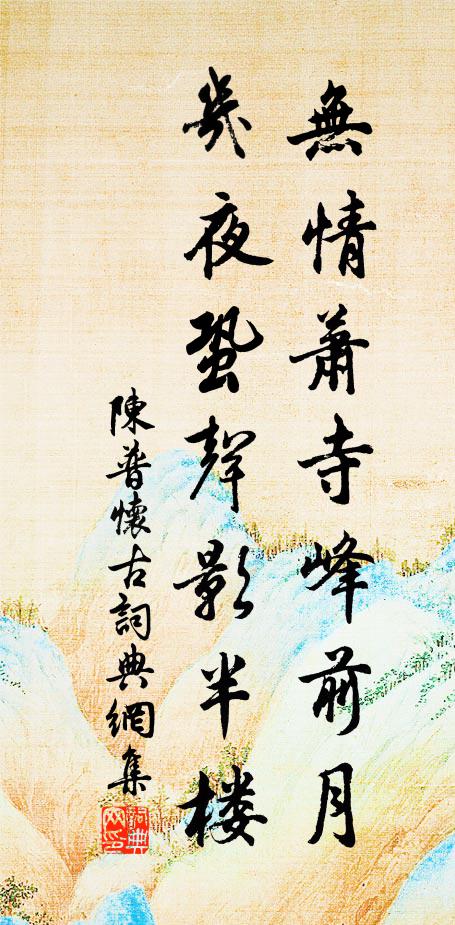 無情蕭寺峰前月
幾夜蛩聲影半楼
陳普懷古詞典網集
詞典網印